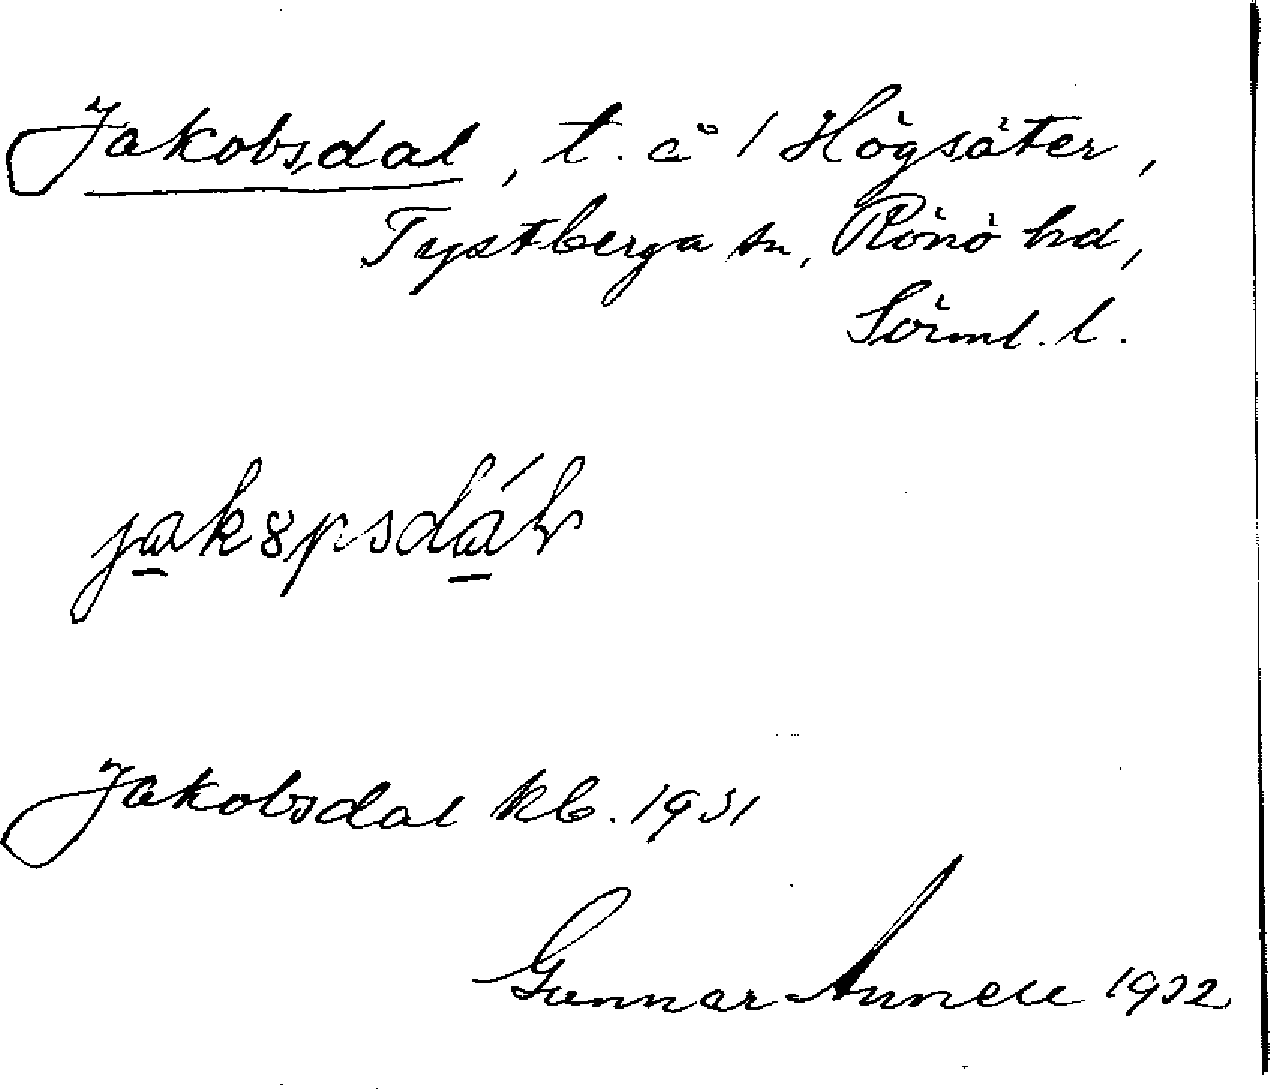 Jakobsdal, t. å 1 Högsäter,
Tystberga sn, Rönö hd,
Sörml. l.
Jakobsdal kb. 1931
Gunnar Annell 1932